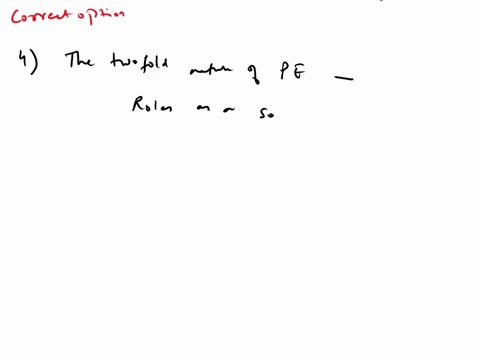 Correct option
4) The twofold nature of PE —
Roles as a so